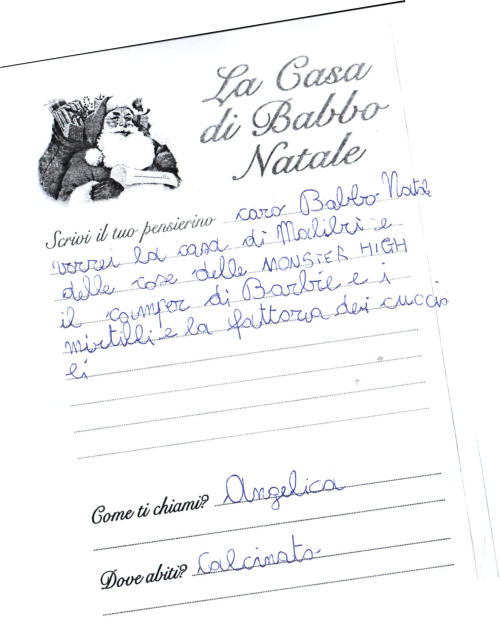 La Casa
di Babbo
Natale
Scrivi il tuo pensierino caro Babbo Natale
vorrei la casa di Malibri e
delle cose delle MONSTER HIGH
il camper di Barbie e i
mirtilli e la fattoria dei cuccio
li
Come ti chiami? Angelica
Dove abiti? Calcinato